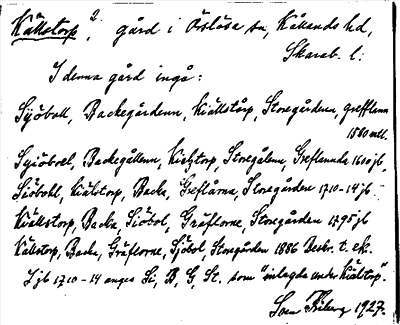 Källstorp, 2 gård i Örslösa sn, Kållands hd,
Skarab. l:
I denna gård ingå:
Siöboll, Backegårdenn, Kiällstårp, Storegårdenn, grefflann
1580 mtl.
Backegållenn, Kieltorp, Storegålenn, Greflunnda 1610 jb,
Siöbohl, Kiälstorp, Backa, Greflårna, Storegården 1710-14 jb.
Kiällstorp, Backa, Siöbol, Gräflorne, Storegården 1795 jb
Källstorp, Backa, Gräflorne, Sjöbol, Storegården 1886 Beskr. t. ek.
I jb 1710-14 anges Si, B, G, St. som "inlagde under Kiälstorp".
Sven 1927.